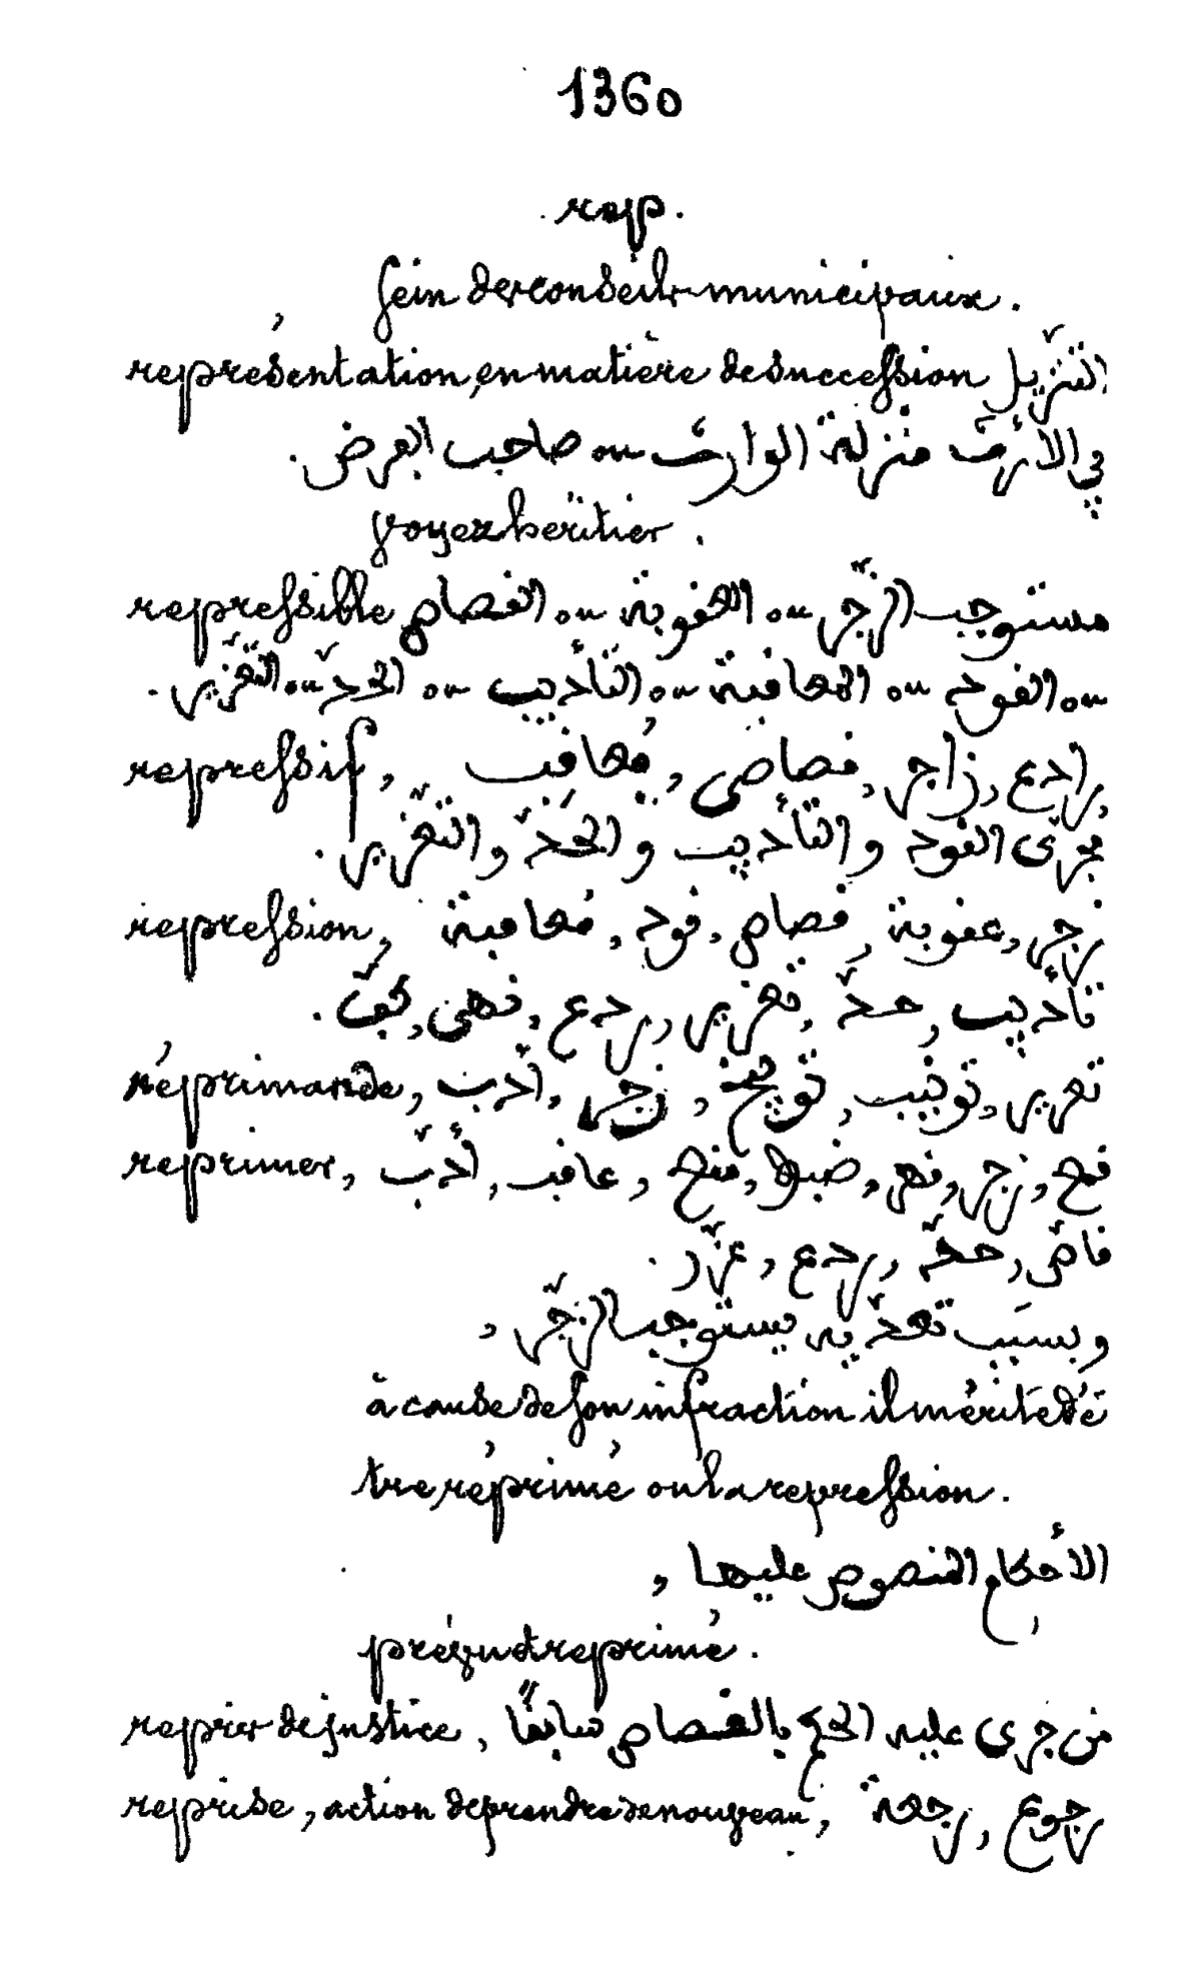 1360
rep.
sein des conseils municipaux.
représentation, en matière de succession التنزيل
في الأرث منزلة الوارث ou صاحب الفرض.
voyez héritier.
repressible مستوجب الزّجر ou العقوبة ou القصاص
ou القود ou المعاقبة ou التأديب ou الحدّ ou التعزير.
repressif, رادع, زاجر, قصاصى, مُعاقِب,
مجرى القود والتأديب والحدّ والتعزير.
repression, زجر, عقوبة, قصاص, قود, مُعاقبة
تأديب, حدّ, تعزير, ردع, نهى, كفّ.
réprimande, تعزير, تونيب, توبيخ, زجر, أدب
reprimer, قمع, زجر, نهى, ضبط, منع, عاقب, أدّب
قاصّ, حدّ, ردع, عزّر.
وبسَبَب تعدّيه يستوجب الزّجر,
à cause de son infraction il mérite d'ê
tre réprimé ou la repression.
الأحكام المنصوص عليها,
prévu et reprimé.
repris de justice, من جرى عليه الحكم بالقصاص سابقًا
reprise, action de prendre de nouveau, رجوع, رجعة